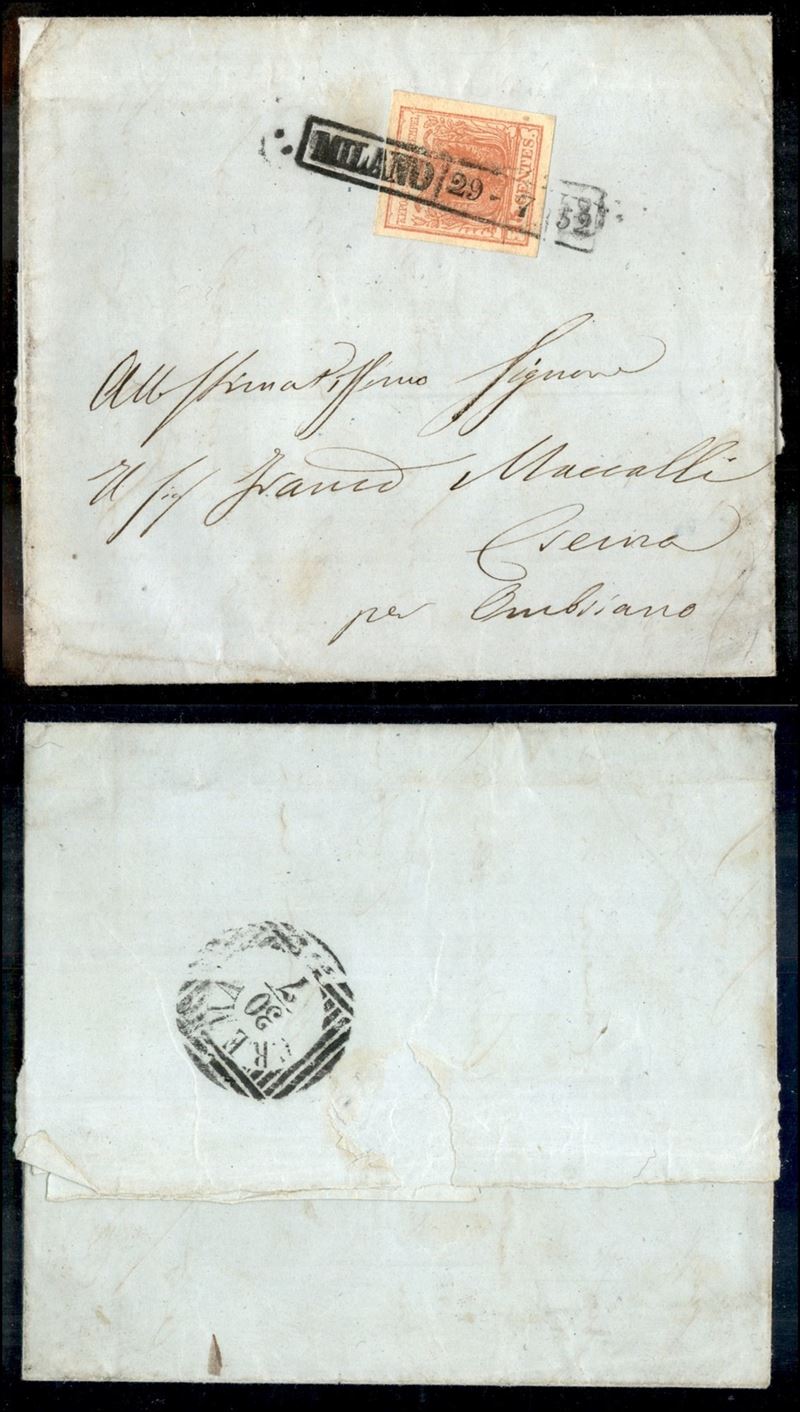 MILANO 29 - 7 52
CENTES.
All Stimatissimo Signore
Il Sig Franco Maccalli
Crema
per Ombriano
CREMA
30
7